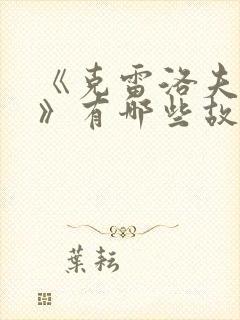 《克雷洛夫
》有哪些故
葉耘